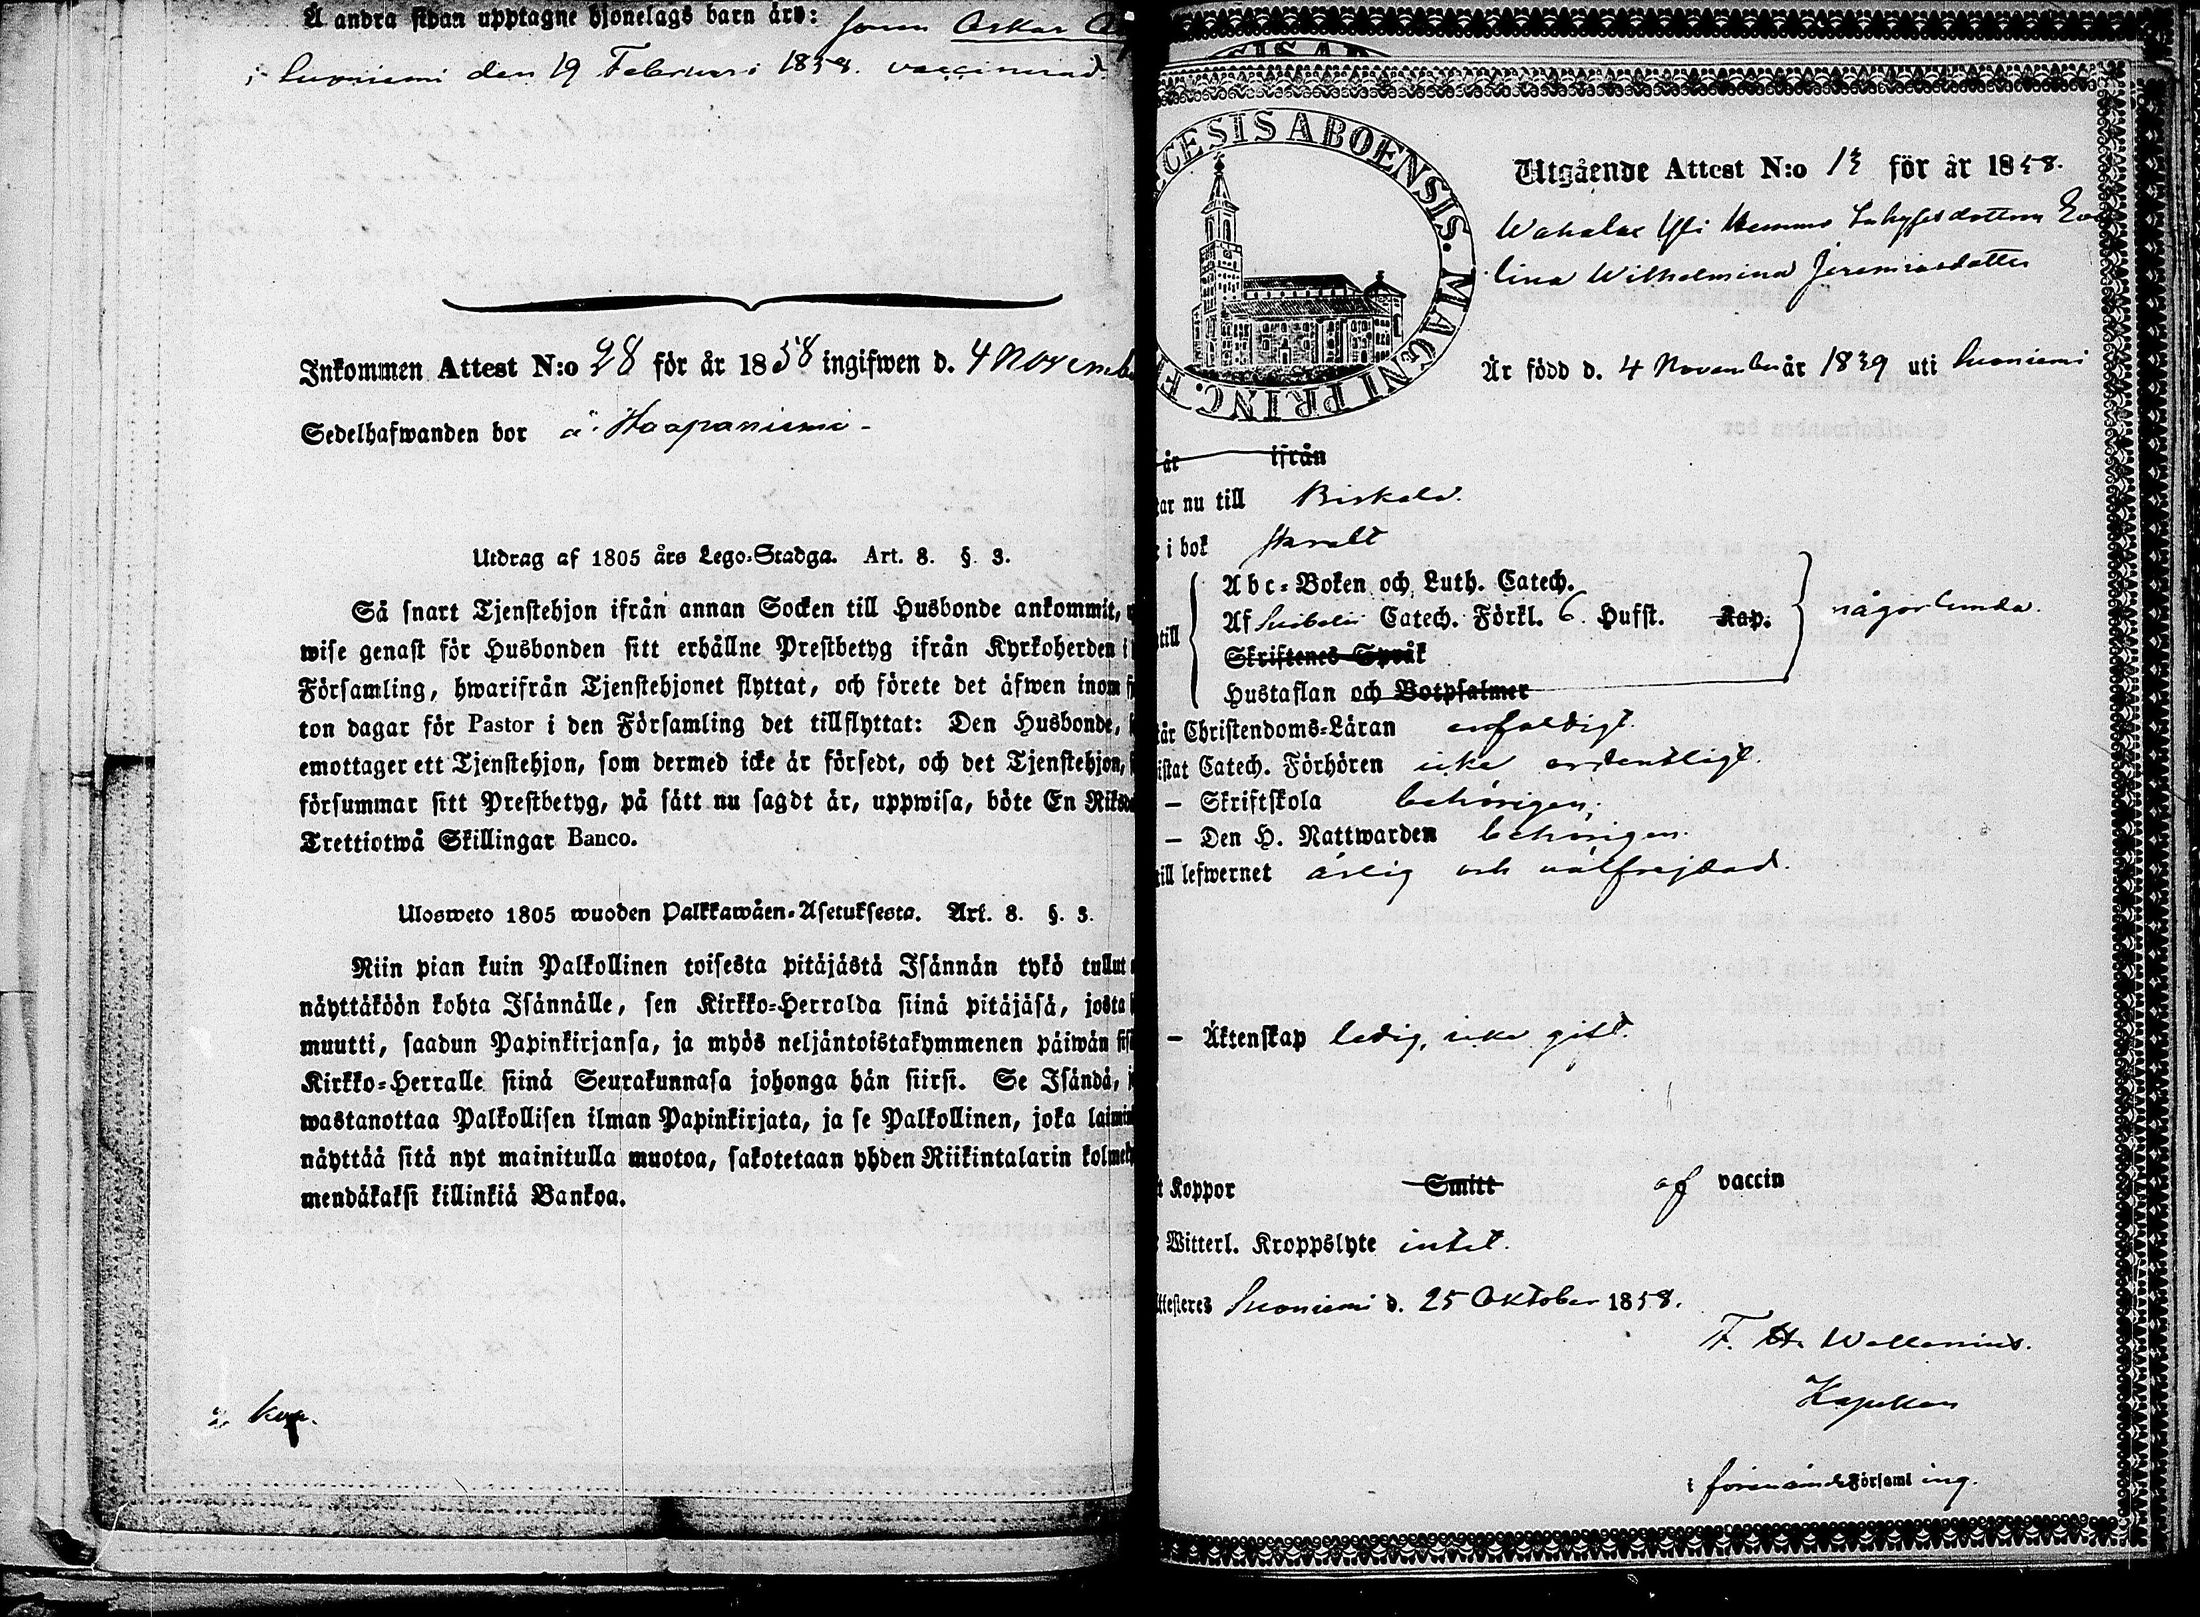 Å andra sidan upptagne hjonelags barn äro: sonen Oskar
i Suoniemi den 19 Februari 1858. vaccinerad.
Inkommen Attest N:o 28 för år 1858 ingifwen d. 4 Novemb
Sedelhafwanden bor å Haapaniemi
Utdrag af 1805 års Lego-Stadga. Art. 8. §. 3.
Så snart Tjenstehjon ifrån annan Socken till Husbonde ankommit, u
wise genast för Husbonden sitt erhållne Prestbetyg ifrån Kyrkoherden i
Församling, hwarifrån Tjenstehjonet flyttat, och förete det äfwen inom f
ton dagar för Pastor i den Församling det tillflyttat: Den Husbonde, s
emottager ett Tjenstehjon, som dermed icke är försedt, och det Tjenstehjon, s
försummar sitt Prestbetyg, på sätt nu sagdt är, uppwisa, böte En Riksd
Trettiotwå Skillingar Banco.
Ulosweto 1805 wuoden Palkkawäen-Asetuksesta. Art. 8. §. 3.
Niin pian kuin Palkollinen toisesta pitäjästä Isännän tykö tullut
näyttäköön kohta Isännälle, sen Kirkko-Herralda siinä pitäjäsä, josta
muutti, saadun Papinkirjansa, ja myös neljäntoistakymmenen päiwän sis
Kirkko-Herralle siinä Seurakunnasa johonga hän siirsi. Se Isändä, j
wastanottaa Palkollisen ilman Papinkirjata, ja se Palkollinen, joka laimin
näyttää sitä nyt mainitulla muotoa, sakotetaan yhden Riikintalarin kolmeky
mendäkaksi killinkiä Bankoa.
2 kop.
CESIS ABOENSIS. MAGNI PRINC. F
Utgående Attest N:o 13 för år 1858.
Wahalax Yli Hemmo Inhysesdottern Eva
lina Wilhelmina Jeremiasdotter
Är född d. 4 November år 1839 uti Suoniemi
år ifrån
ar nu till Birkala.
i bok svalt
Abc-Boken och Luth. Catech.
till Af Svebelii Catech. Förkl. 6 Hufst. Kap. någorlunda.
Skriftenes Språk
Hustaflan och Botpsalmer
tår Christendoms-Läran enfaldigt.
istat Catech. Förhören icke ordentligt.
— Skriftskola behörigen.
— Den H. Nattwarden behörigen.
till lefwernet ärlig och välfrejdad.
— Äktenskap ledig, icke gift.
t Koppor Smitt af vaccin
Witterl. Kroppslyte intet.
ttesteres Suoniemi d. 25 Oktober 1858.
F. H. Wallenius.
Kapellan
i förenämnde Församl ing.